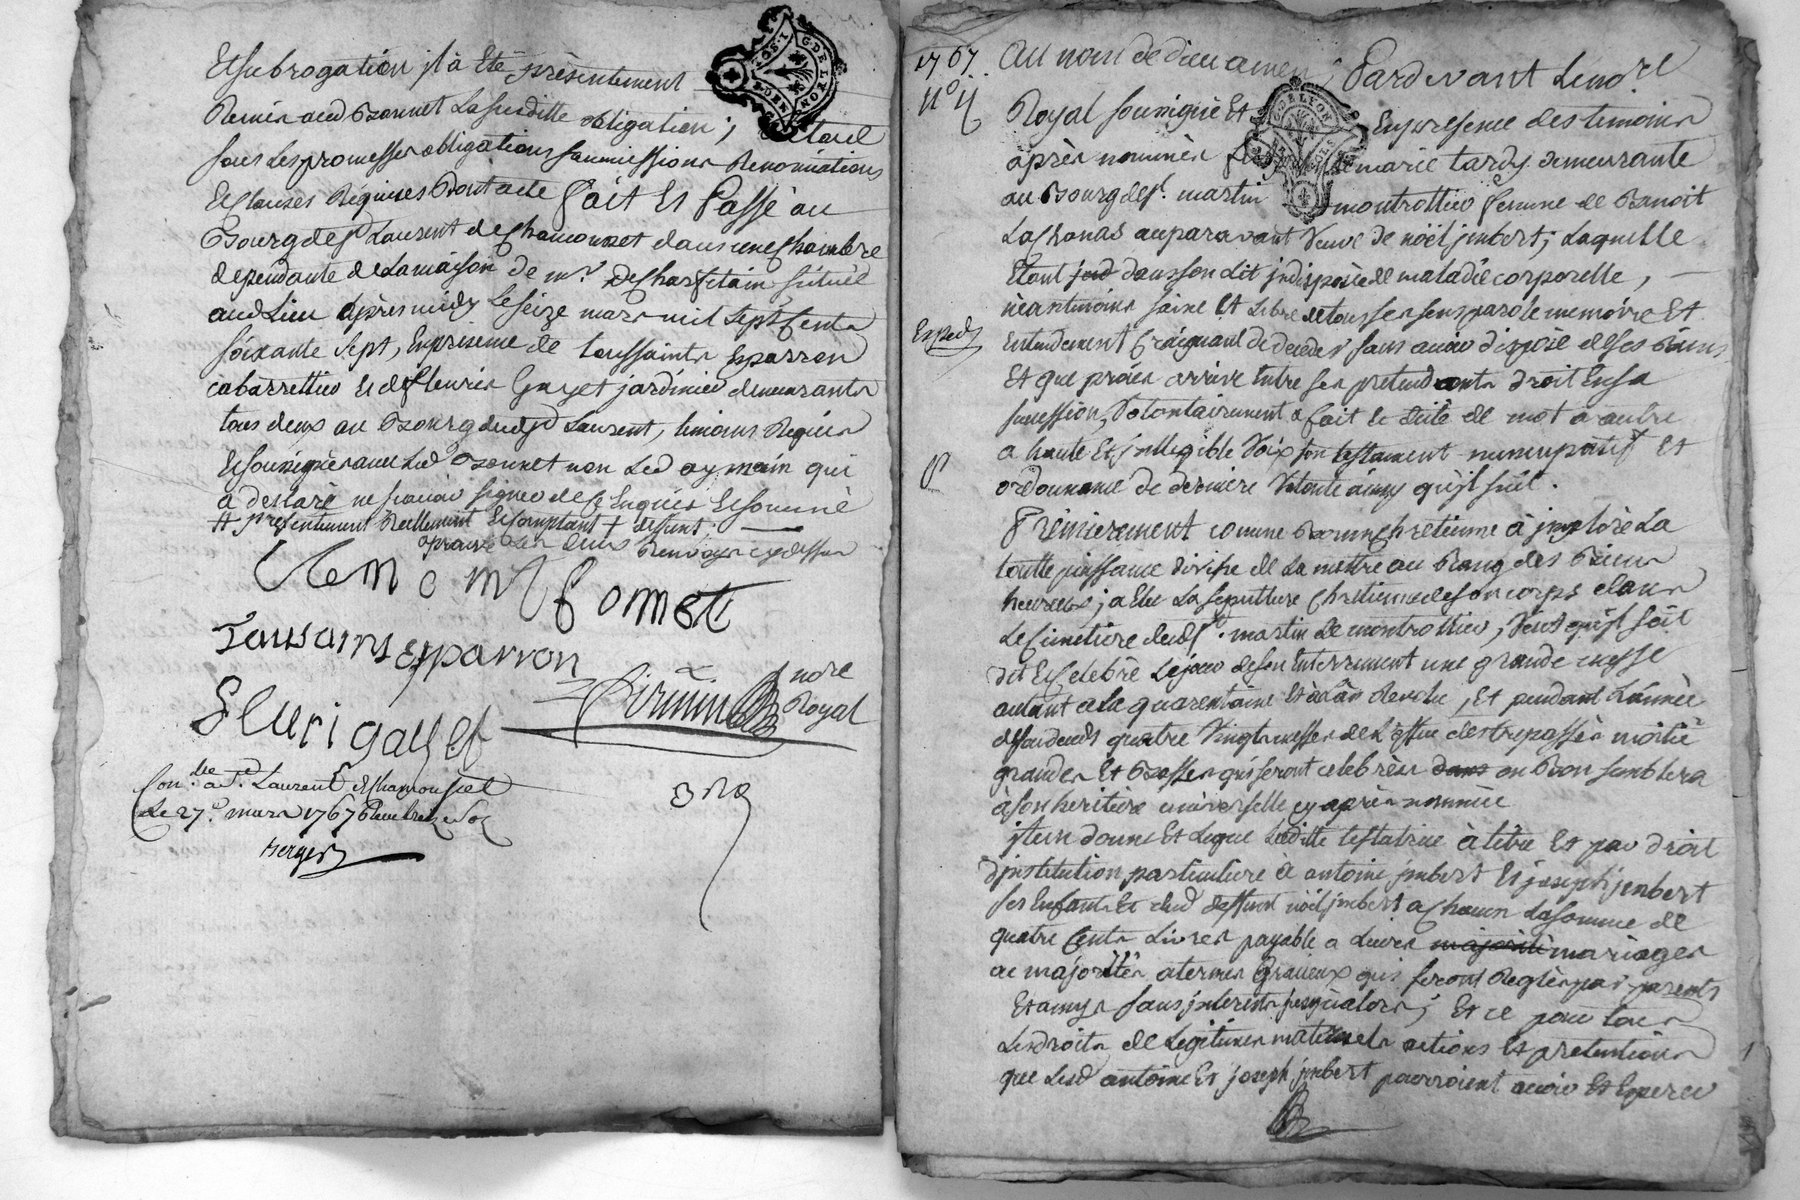 Et subrogation il à Eté présentement
Remis aud Bonnet Lasusditte obligation; Et tout
sous Les promesses obligations soumissions Renonciations
Et clauses Réquises Dont acte fait Et Passé au
Bourg de St Laurent de Chamousset dans une chambre
dependante de La maison de mr. De situéé
aud Lieu après midy Le seize mars mil sept Cents
soixante sept, En presence de toussaints Esparron
cabarrettier Et de fleurin Guyet jardinier demeurants
tous deux au Bourg dudt St Laurent, temoins Requis
Et soussignés avec Led Bonnet non Led aymain qui
a declaré ne sçavoir signer de ce Enquis Et sommé
++ présentement Reellement Et comptant + deffunt
aprouvé Les deux Renvoys cydessus
Clemomt bonnet
Tousaint Esparron
notre
Royal
Fleuri gayet
Con.lle a St. Laurent de chamousset
Le 27e mars 1767 Reçu
Berger
1767.
No 4
Au nom de dieu amen; Pardevant Le nore
Royal soussigné Et En presence des temoins
après nommés fut marie tardy demeurante
au Bourg de St. martin montrottier femme de Benoit
Lachanas auparavant Veuve de nöel jmbert; Laquelle
Etant dans son Lit jndisposéé de maladie corporelle,
néantmoins saine Et Libre de tous ses sens parole memoire Et
Exped
Entendement Craignant de deceder sans avoir disposé de ses Biens
Et que procès arrive Entre ses pretendants droit En sa
succession, Volontairement a fait et dicté de mot a autre
a haute Et jntelligible Voix son testament nuncupatif Et
ordonnance de derniere Volonté ainsy qu'jl suit.
Premierement comme Bonne chretienne à jmploré La
toutte puissance divine de La mettre au Rang des Biens
heureux; a Elu La sepulture chretienne de son corps dans
Le Cimetiere dudt St. martin de montrottier, Veut qu'jl soit
dit Et celebré Le jour de son Enterrement une grande messe
autant a La quarentaine Et à L'an Revolu, Et pendant L'année
de son deceds quatre Vingt messes de L'office des trepassés moitié
grandes Et Basses qui seront celebrées dans ou Bon semblera
à son heritiere universelle cy après nommée
jtem donne Et Legue Laditte testatrice à titre Et par droit
d'jnstitution particuliere à antoine jmbert Et joseph jmbert
ses Enfants Et dud deffunt nöel jmbert a chacun La somme de
quatre Cents Livres payable a Leurs majorité mariages
ou majorités a termes Gracieux qui seront Reglés par parents
Et amys sans jnterets jusqu'alors; Et ce pour tous
Les droits de Legitimes maternels actions Et pretentions
que Lesd antoine Et joseph jmbert pourroient avoir Et Esperer